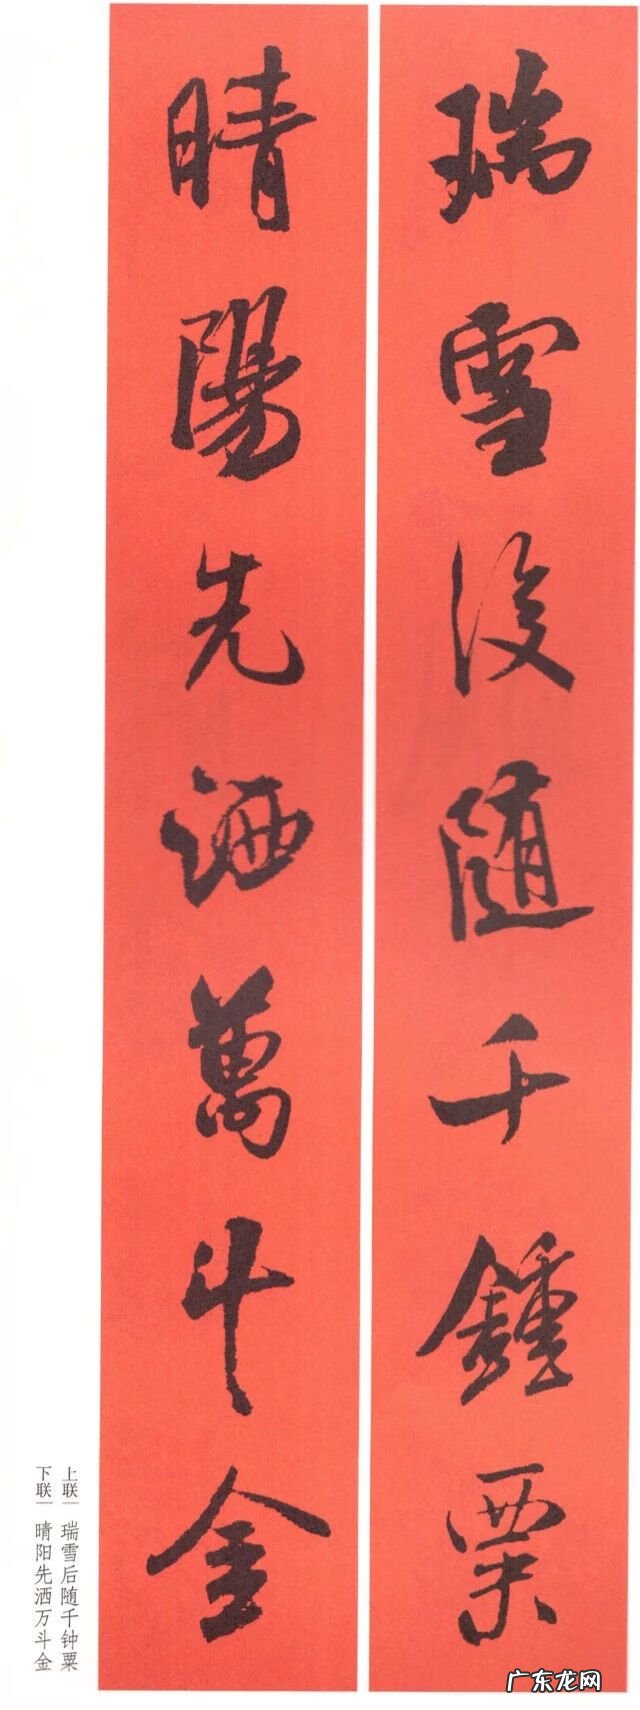 瑞雪後随千鍾粟
晴陽先洒萬斗金
上联｜瑞雪后随千钟粟
下联｜晴阳先洒万斗金
广东龙网